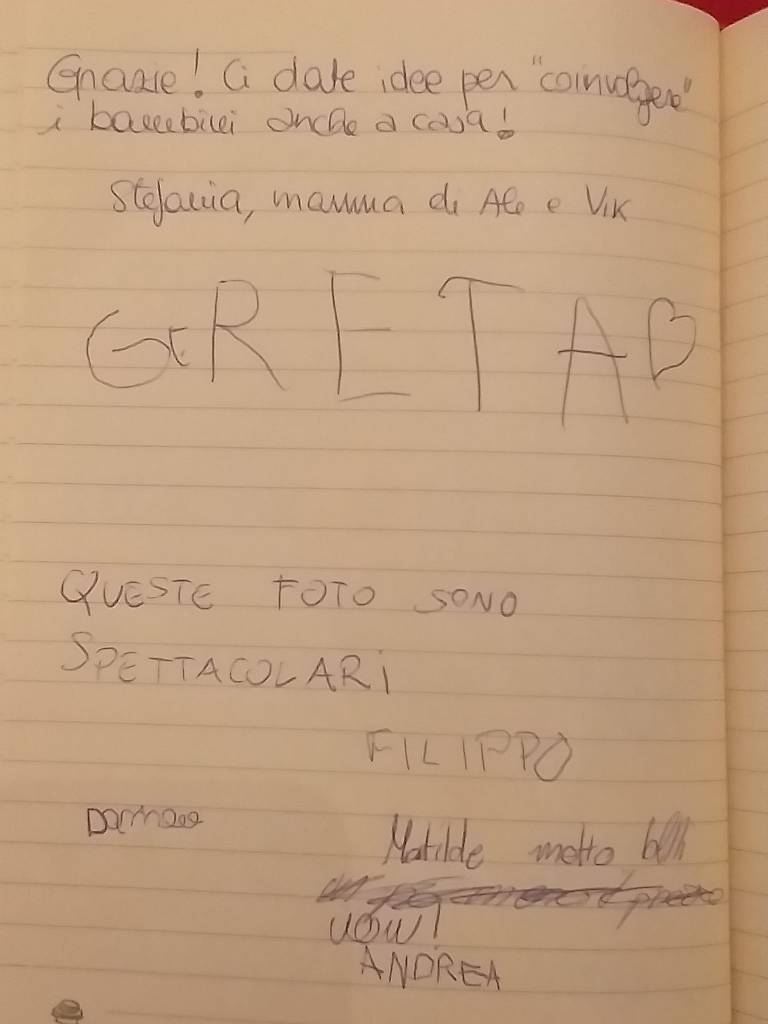 Grazie! Ci date idee per "coinvolgere"
i bambini anche a casa!
Stefania, mamma di Ale e Vik
GRETA
QUESTE FOTO SONO
SPETTACOLARI
FILIPPO
Matilde molto belli
UOW!
ANDREA